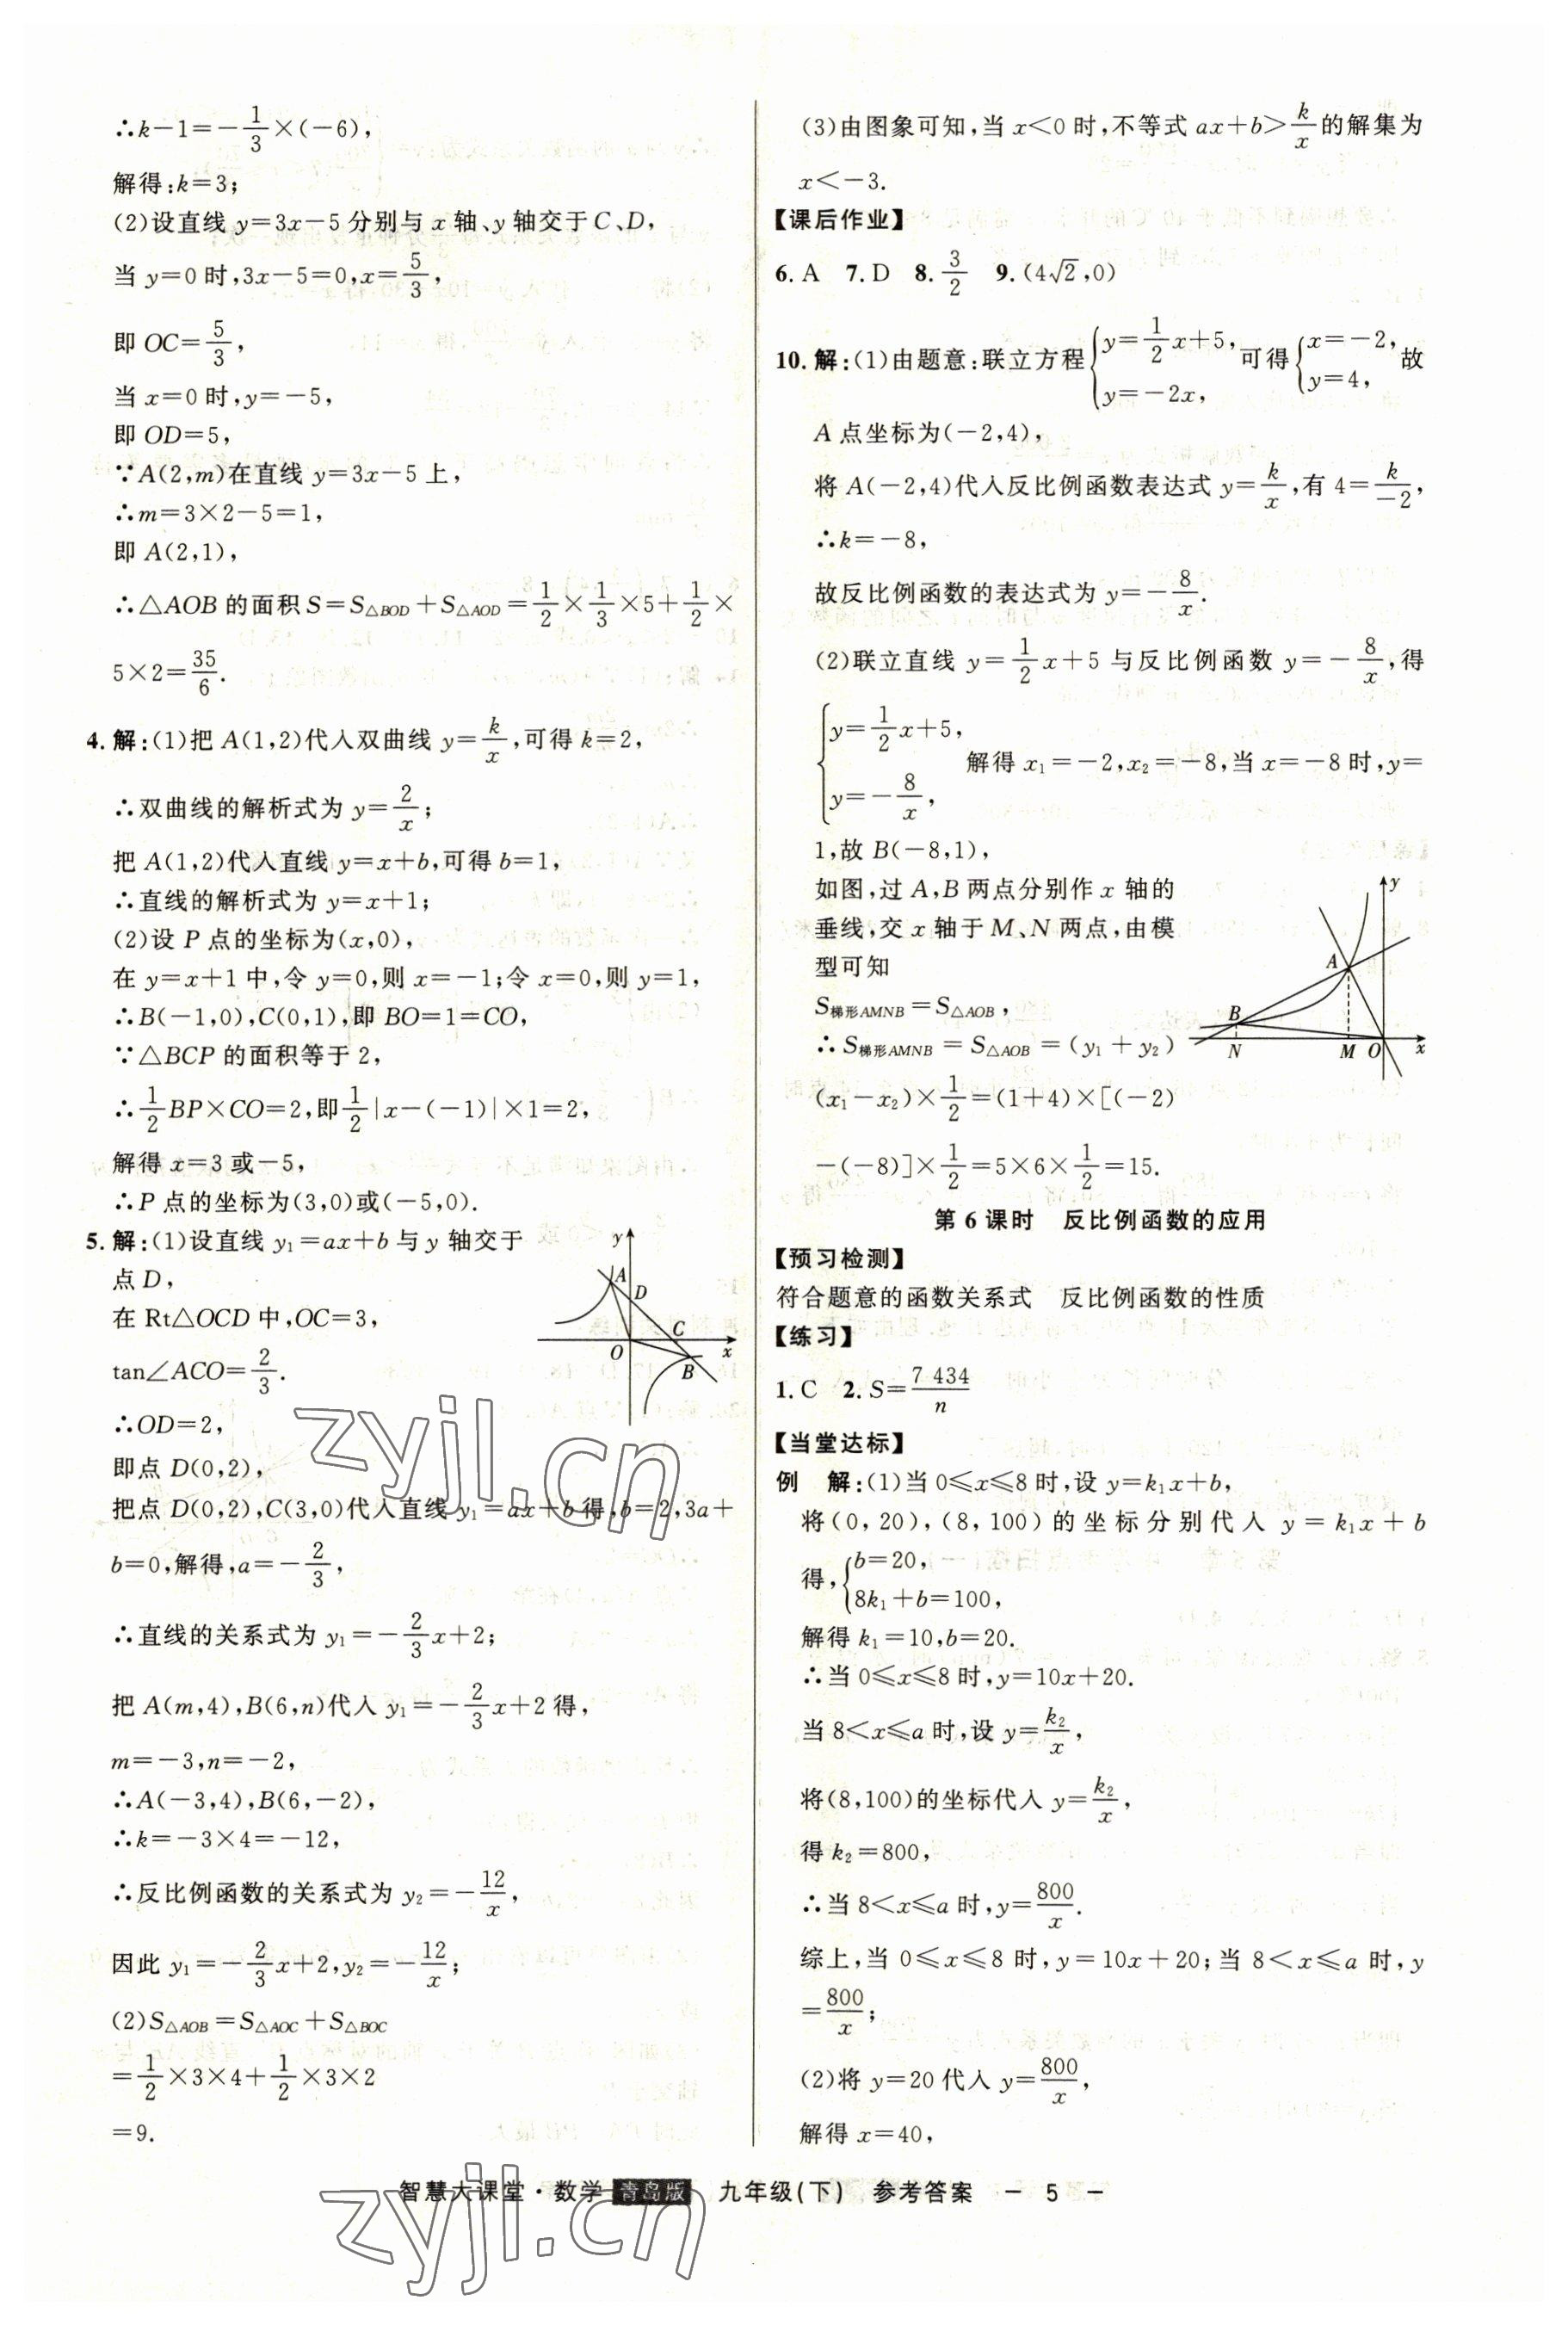 ∴k－1＝－1/3×(－6),
解得:k＝3;
(2)设直线 y＝3x－5 分别与 x 轴、y 轴交于 C、D,
当 y＝0 时,3x－5＝0,x＝5/3,
即 OC＝5/3,
当 x＝0 时,y＝－5,
即 OD＝5,
∵A(2,m)在直线 y＝3x－5 上,
∴m＝3×2－5＝1,
即 A(2,1),
∴△AOB 的面积 S＝S△BOD＋S△AOD＝1/2×1/3×5＋1/2×
5×2＝35/6.
4. 解:(1)把 A(1,2)代入双曲线 y＝k/x,可得 k＝2,
∴双曲线的解析式为 y＝2/x;
把 A(1,2)代入直线 y＝x＋b,可得 b＝1,
∴直线的解析式为 y＝x＋1;
(2)设 P 点的坐标为(x,0),
在 y＝x＋1 中,令 y＝0,则 x＝－1;令 x＝0,则 y＝1,
∴B(－1,0),C(0,1),即 BO＝1＝CO,
∵△BCP 的面积等于 2,
∴1/2BP×CO＝2,即1/2|x－(－1)|×1＝2,
解得 x＝3 或－5,
∴P 点的坐标为(3,0)或(－5,0).
5. 解:(1)设直线 y₁＝ax＋b 与 y 轴交于
点 D,
在 Rt△OCD 中,OC＝3,
tan∠ACO＝2/3.
y
A
D
C
O
x
B
∴OD＝2,
即点 D(0,2),
把点 D(0,2),C(3,0)代入直线 y₁＝ax＋b 得,b＝2,3a＋
b＝0,解得,a＝－2/3,
∴直线的关系式为 y₁＝－2/3x＋2;
把 A(m,4),B(6,n)代入 y₁＝－2/3x＋2 得,
m＝－3,n＝－2,
∴A(－3,4),B(6,－2),
∴k＝－3×4＝－12,
∴反比例函数的关系式为 y₂＝－12/x,
因此 y₁＝－2/3x＋2,y₂＝－12/x;
(2)S△AOB＝S△AOC＋S△BOC
＝1/2×3×4＋1/2×3×2
＝9.
(3)由图象可知,当 x＜0 时,不等式 ax＋b＞k/x的解集为
x＜－3.
【课后作业】
6. A 7. D 8. 3/2 9. (4√2,0)
10. 解:(1)由题意:联立方程{y＝1/2x＋5, y＝－2x,可得{x＝－2, y＝4,故
A 点坐标为(－2,4),
将 A(－2,4)代入反比例函数表达式 y＝k/x,有 4＝k/－2,
∴k＝－8,
故反比例函数的表达式为 y＝－8/x.
(2)联立直线 y＝1/2x＋5 与反比例函数 y＝－8/x,得
{y＝1/2x＋5, y＝－8/x, 解得 x₁＝－2,x₂＝－8,当 x＝－8 时,y＝
1,故 B(－8,1),
如图,过 A,B 两点分别作 x 轴的
垂线,交 x 轴于 M、N 两点,由模
型可知
S梯形AMNB＝S△AOB,
∴S梯形AMNB＝S△AOB＝(y₁＋y₂)
(x₁－x₂)×1/2＝(1＋4)×[(－2)
－(－8)]×1/2＝5×6×1/2＝15.
y
A
B
N
M
O
x
第 6 课时 反比例函数的应用
【预习检测】
符合题意的函数关系式 反比例函数的性质
【练习】
1. C 2. S＝7 434/n
【当堂达标】
例 解:(1)当 0≤x≤8 时,设 y＝k₁x＋b,
将(0,20),(8,100)的坐标分别代入 y＝k₁x＋b
得,{b＝20, 8k₁＋b＝100,
解得 k₁＝10,b＝20.
∴当 0≤x≤8 时,y＝10x＋20.
当 8＜x≤a 时,设 y＝k₂/x,
将(8,100)的坐标代入 y＝k₂/x,
得 k₂＝800,
∴当 8＜x≤a 时,y＝800/x.
综上,当 0≤x≤8 时,y＝10x＋20;当 8＜x≤a 时,y
＝800/x;
(2)将 y＝20 代入 y＝800/x,
解得 x＝40,
智慧大课堂·数学 青岛版 九年级(下) 参考答案 － 5 －
zyjl.cn
zyjl.cn